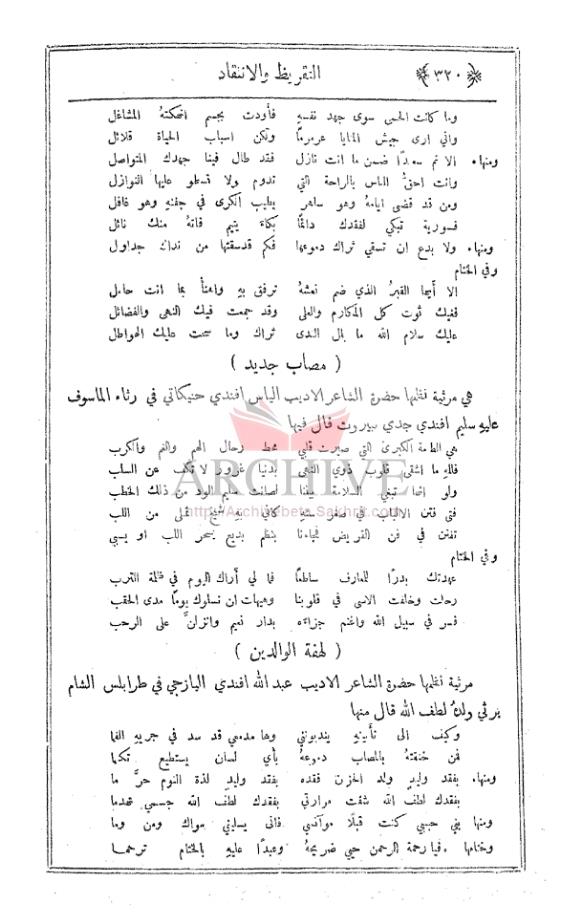 ﴿٣٢٠﴾ التقريظ والانتقاد
وما كانت الحمى سوى جهد نفسهِ فأودت بجسم انهكتهُ المشاغل
واني ارى جيش المنايا عرمرمًا ولكن اسباب الحياة قلائل
ومنها. الا نم سعيدًا ضمن ما انت نازل فقد طال فينا جهدك المتواصل
وانت احقُّ الناس بالراحة التي تدوم ولا تسطو عليها النوازل
ومن قد قضى ايامهُ وهو ساهر يطيب الكرى في جفنهِ وهو غافل
فسورية تبكي لفقدك دائمًا بكاء يتيم فاتهُ منك نائل
ومنها. ولا بدع ان تسقي ثراك دموعها فكم قد سقتها من نداك جداول
وفي الختام
الا أيها القبرُ الذي ضم نعشهُ ترفق بهِ واهنأ بما انت حامل
ففيك ثوت كل المكارم والعلى وقد جمعت فيك النهى والفضائل
عليك سلام الله ما بال الندى ثراك وما سحت عليك الهواطل
( مصاب جديد )
هي مرثية نظمها حضرة الشاعر الاديب الياس افندي حنيكاتي في رثاء الماسوف
عليهِ سليم افندي جدي بيروت قال فيها
هي الطامة الكبرى التي صيرت قلبي محط رحال الهم والغم والكرب
فللهِ ما اشقى قلوب ذوي النهى بدنيا غرور لا تكف عن السلب
ولو انها تبغي السلامة بيننا لصانت سليم الود من ذلك الخطب
فتى فتن الالباب في صغر سنهِ
تفنن في فن القريض فجاءنا بنظم بديع يسحر اللب او يسبي
وفي الختام
عهدتك بدرًا للمعارف ساطعًا فما لي أراك اليوم في ظلمة الترب
رحلت وخلفت الاسى في قلوبنا وهيهات ان نسلوك يومًا مدى الحقب
فسر في سبيل الله واغنم جزاءه بدار نعيم وانزلنَّ على الرحب
( لهفة الوالدين )
مرثية نظمها حضرة الشاعر الاديب عبد الله افندي اليازجي في طرابلس الشام
يرثي ولدهُ لطف الله قال منها
وكيف الى تأبينهِ يندبونني وها مدمعي قد سد في جريهِ الفما
فمن خنقتهُ بالمصاب دموعهُ بأي لسان يستطيع تكلما
ومنها. بفقد وليدٍ ولد الحزن فقده بفقد وليدٍ لذة النوم حرَّما
بفقدك لطف الله شقت مرارتي بفقدك لطف الله جسمي تهدما
ومنها بني حبيبي كنت قبلًا موآنسي فمن يسليني سواك ومن وما
وختامها. فيا رحمة الرحمن حيي ضريحهُ وعبدًا عليهِ بالختام ترحما
ARCHIVE
http://Archivebeta.Sakhrit.com